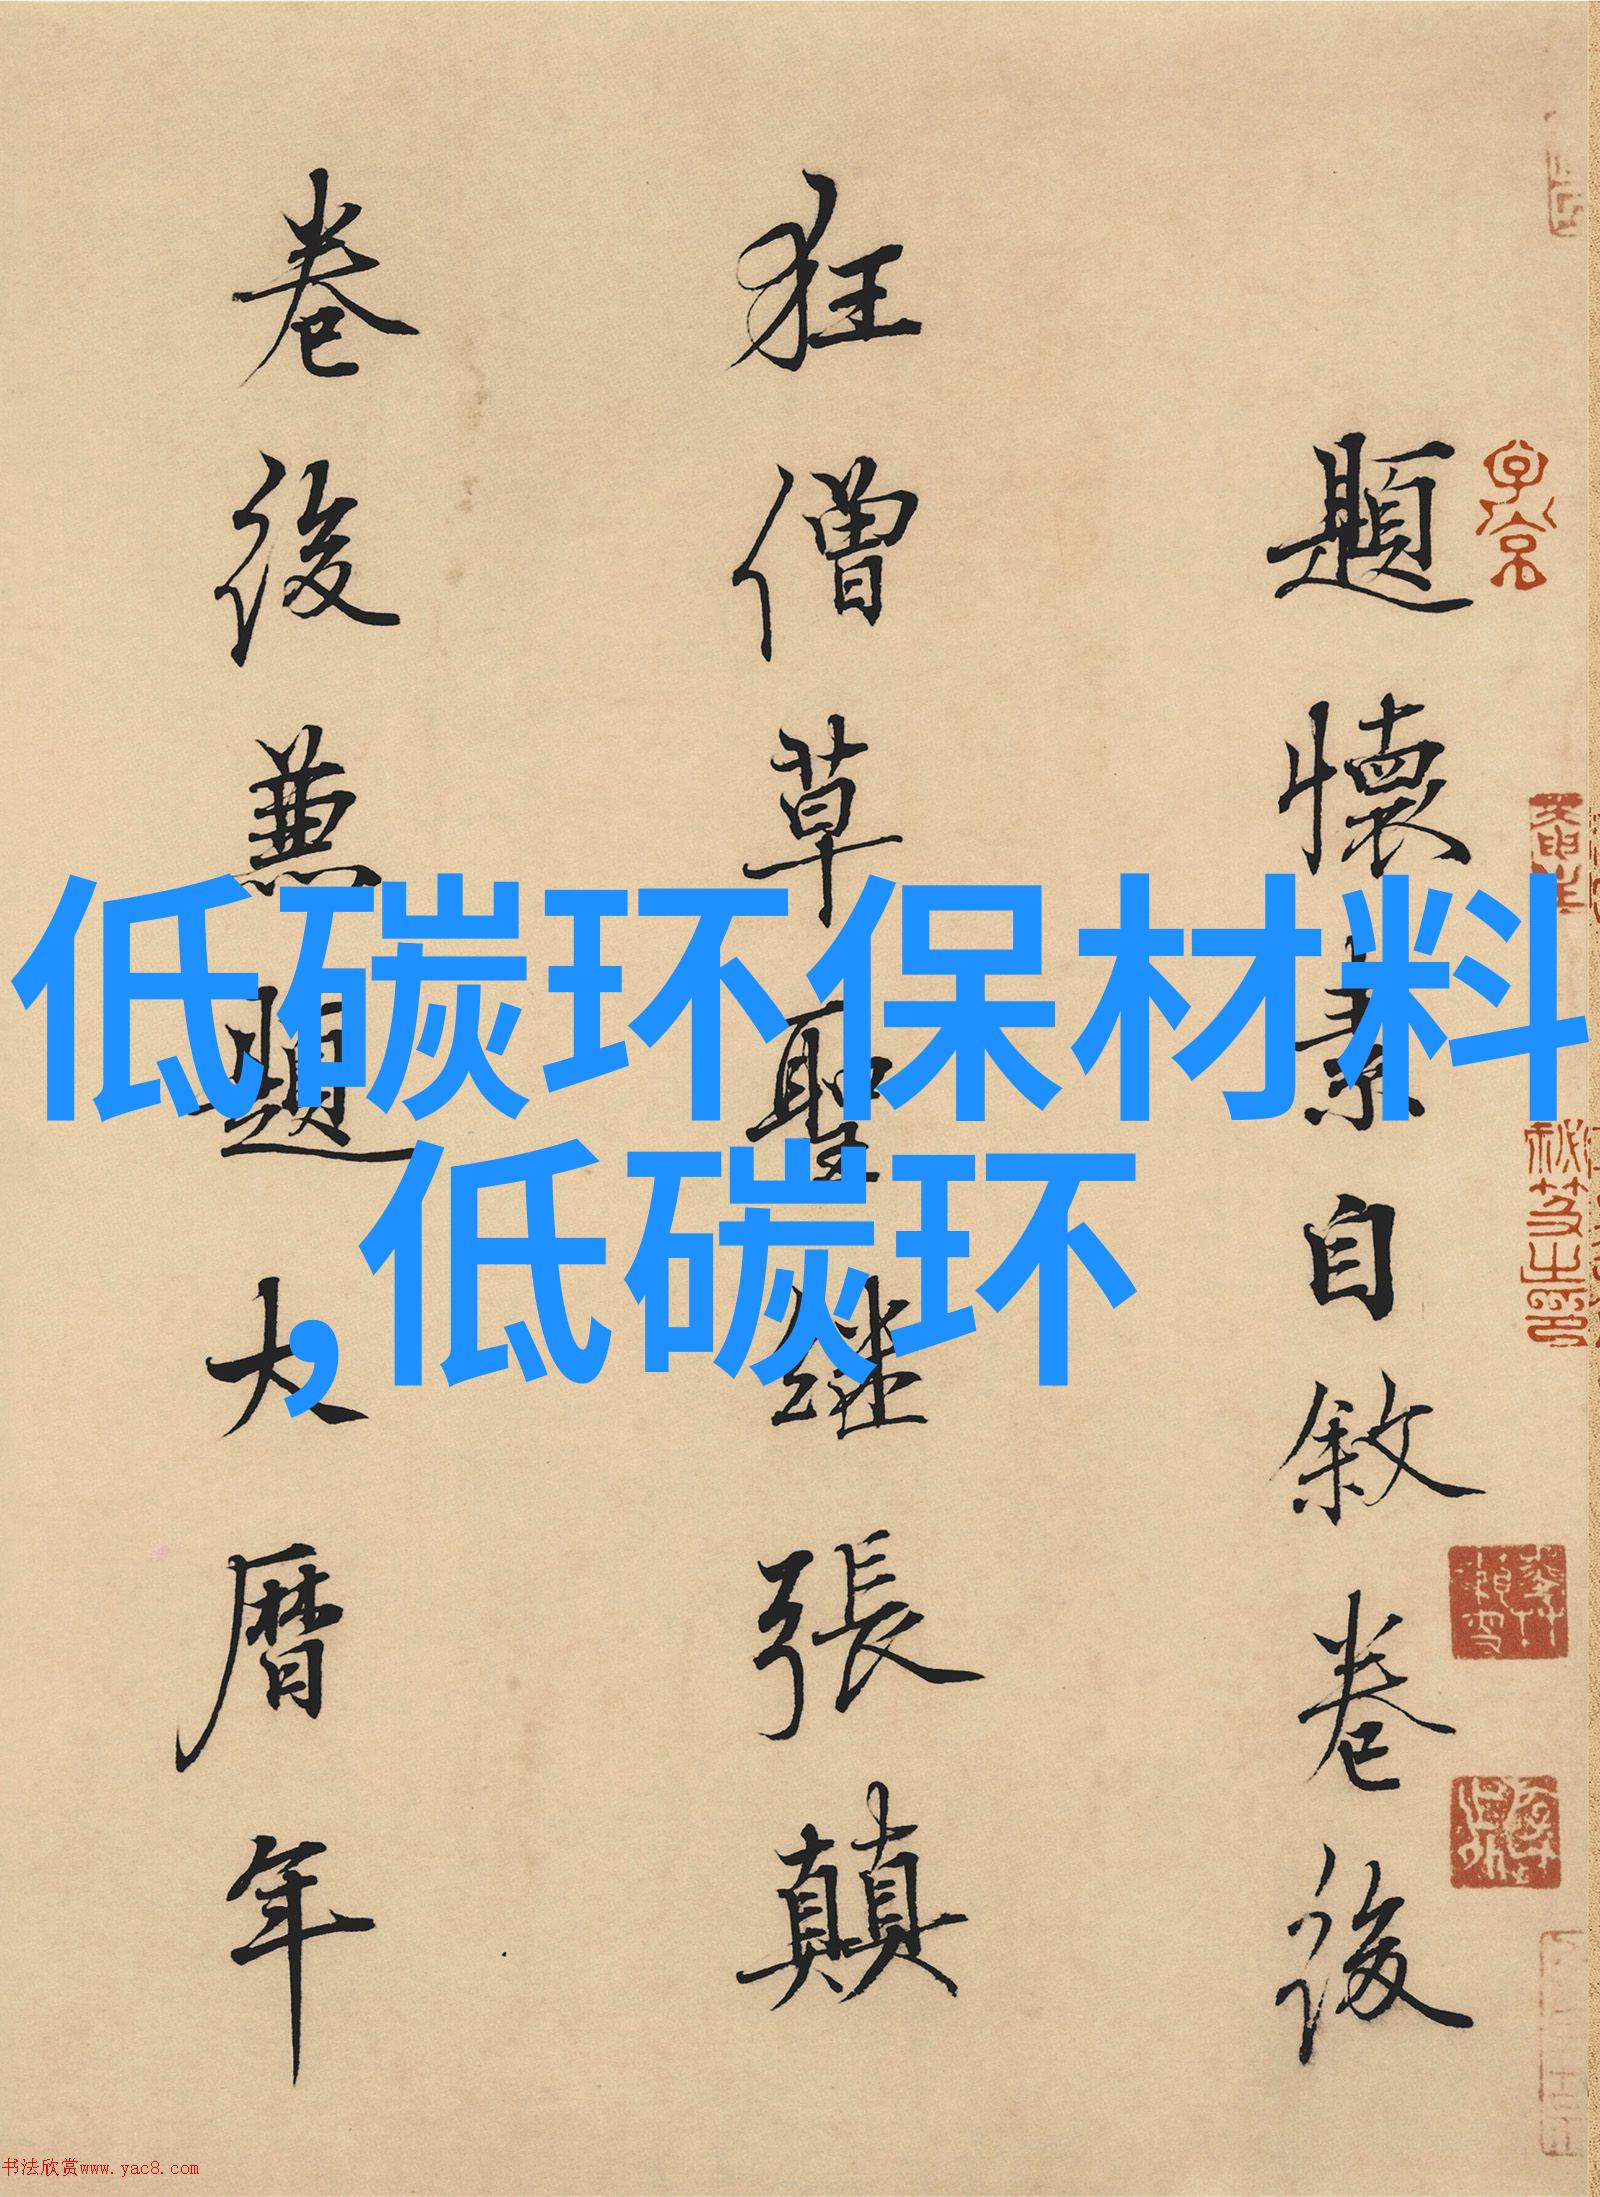 題懷素自敘卷後
狂僧草聖继張顛
卷後兼題大曆年
低碳环保材料
,低碳环
书法欣赏www.yac8.com